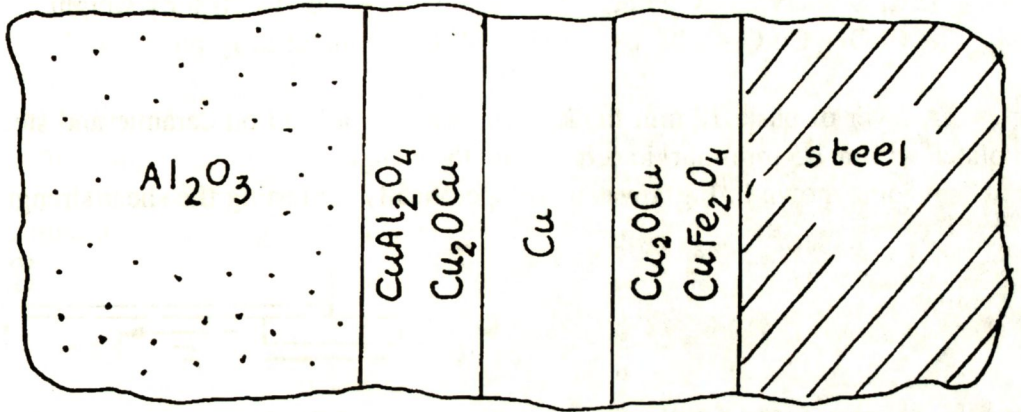 Al₂O₃
CuAl₂O₄
Cu₂OCu
Cu
Cu₂OCu
CuFe₂O₄
steel